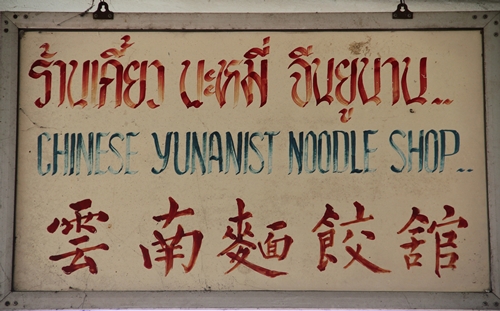 ร้านเกี๊ยว บะหมี่ จีนยูนาน...
CHINESE YUNANIST NOODLE SHOP..
雲南麵餃舘